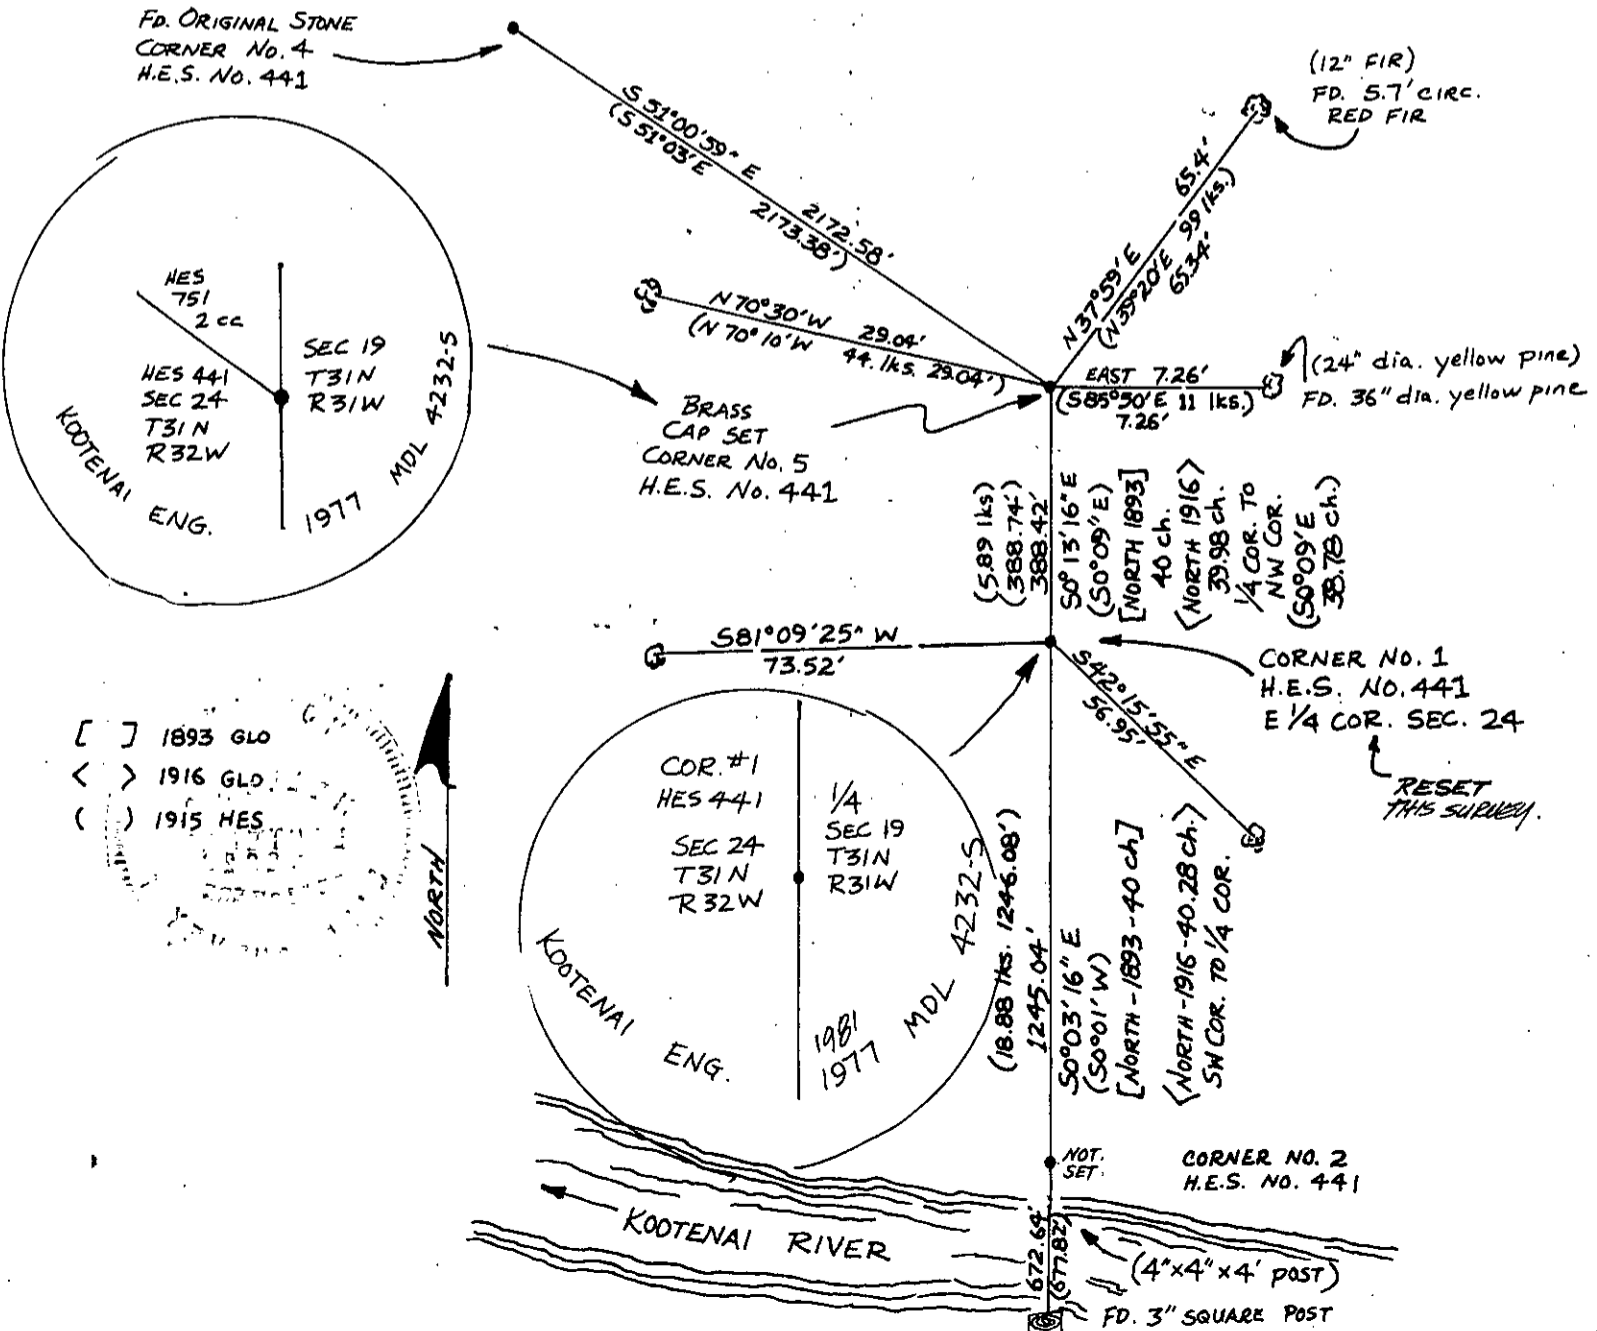 FD. ORIGINAL STONE
CORNER No. 4
H.E.S. No. 441
S 51°00'59" E 2172.58'
(S 51°03'E 2173.38')
(12" FIR)
FD. 5.7' CIRC.
RED FIR
N 37°59' E 65.4'
(N 39°20'E 99 lks.)
65.34'
N 70°30'W 29.04'
(N 70°10'W 44. lks. 29.04')
EAST 7.26'
(S85°50'E 11 lks.)
7.26'
(24" dia. yellow pine)
FD. 36" dia. yellow pine
HES
751
2 cc
HES 441
SEC 24
T31N
R32W
SEC 19
T31N
R31W
KOOTENAI ENG. 1977 MDL 4232-S
BRASS
CAP SET
CORNER No. 5
H.E.S. No. 441
(5.89 lks)
(388.74')
388.42'
S0°13'16"E
(S0°09'E)
[NORTH 1893]
40 ch.
<NORTH 1916>
39.98 ch.
1/4 COR. TO
NW COR.
(S0°09'E
38.78 ch.)
S81°09'25" W
73.52'
S42°15'55" E
56.95'
CORNER NO. 1
H.E.S. NO. 441
E 1/4 COR. SEC. 24
RESET
THIS SURVEY.
[ ] 1893 GLO
< > 1916 GLO
( ) 1915 HES
NORTH
COR. #1
HES 441
SEC 24
T31N
R32W
1/4
SEC 19
T31N
R31W
KOOTENAI ENG.
1981
1977 MDL 4232-S
(18.88 lks. 1246.08')
1245.04'
S0°03'16" E
(S0°01' W)
[NORTH-1893-40 ch]
<NORTH-1916-40.28 ch.>
SW COR. TO 1/4 COR.
NOT.
SET
CORNER NO. 2
H.E.S. NO. 441
KOOTENAI RIVER
672.64'
(677.82')
(4"x4"x4' POST)
FD. 3" SQUARE POST